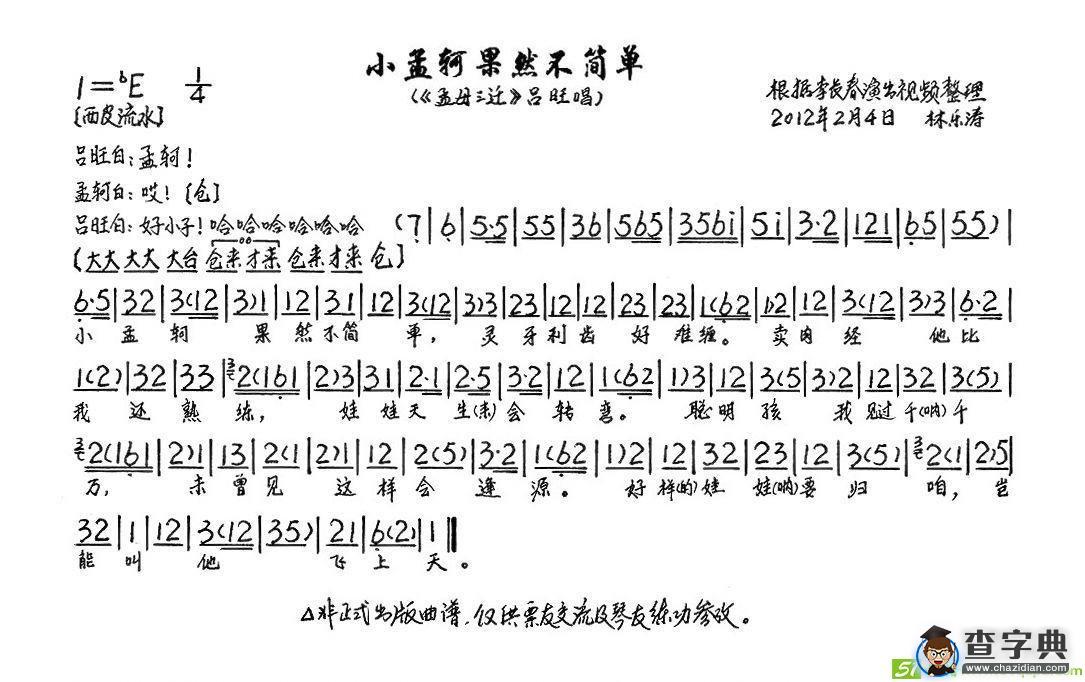 小孟轲果然不简单
(《孟母三迁》吕旺唱)
1=♭E 1/4
[西皮流水]
根据李长春演出视频整理
2012年2月4日 林乐涛
吕旺白:孟轲!
孟轲白:哎![仓]
吕旺白:好小子!哈哈哈哈哈哈 (7|6|5·5|55|36|565|356i|5i|3·2|121|65|55)|
[大大 大大 大台 仓来才来 仓来才来 仓]
6·5|32|3(12|3)1|12|31|12|3(12|3)3|23|12|12|23|23|1(62|1)2|12|3(12|3)3|6·2|
小孟轲果然不简单,灵牙利齿好难缠。卖肉经他比
1(2)|32|33|2(161|2)3|31|2·1|2·5|3·2|12|1(62|1)3|12|3(5|3)2|12|32|3(5)|
我还熟练,娃娃天生(未)会转弯。聪明孩我见过千(呐)千
2(161|2)1|13|2(1|2)1|12|2(5)|3·2|1(62|1)2|12|32|23|12|3(5)|2(1|2)5|
万,未曾见这样会逢源。好样(的)娃娃(呐)要归咱,岂
32|1|12|3(12|35)|21|6(2)|1‖
能叫他飞上天。
△非正式出版曲谱,仅供票友交流及琴友练功参改。
查字典
www.chazidian.com